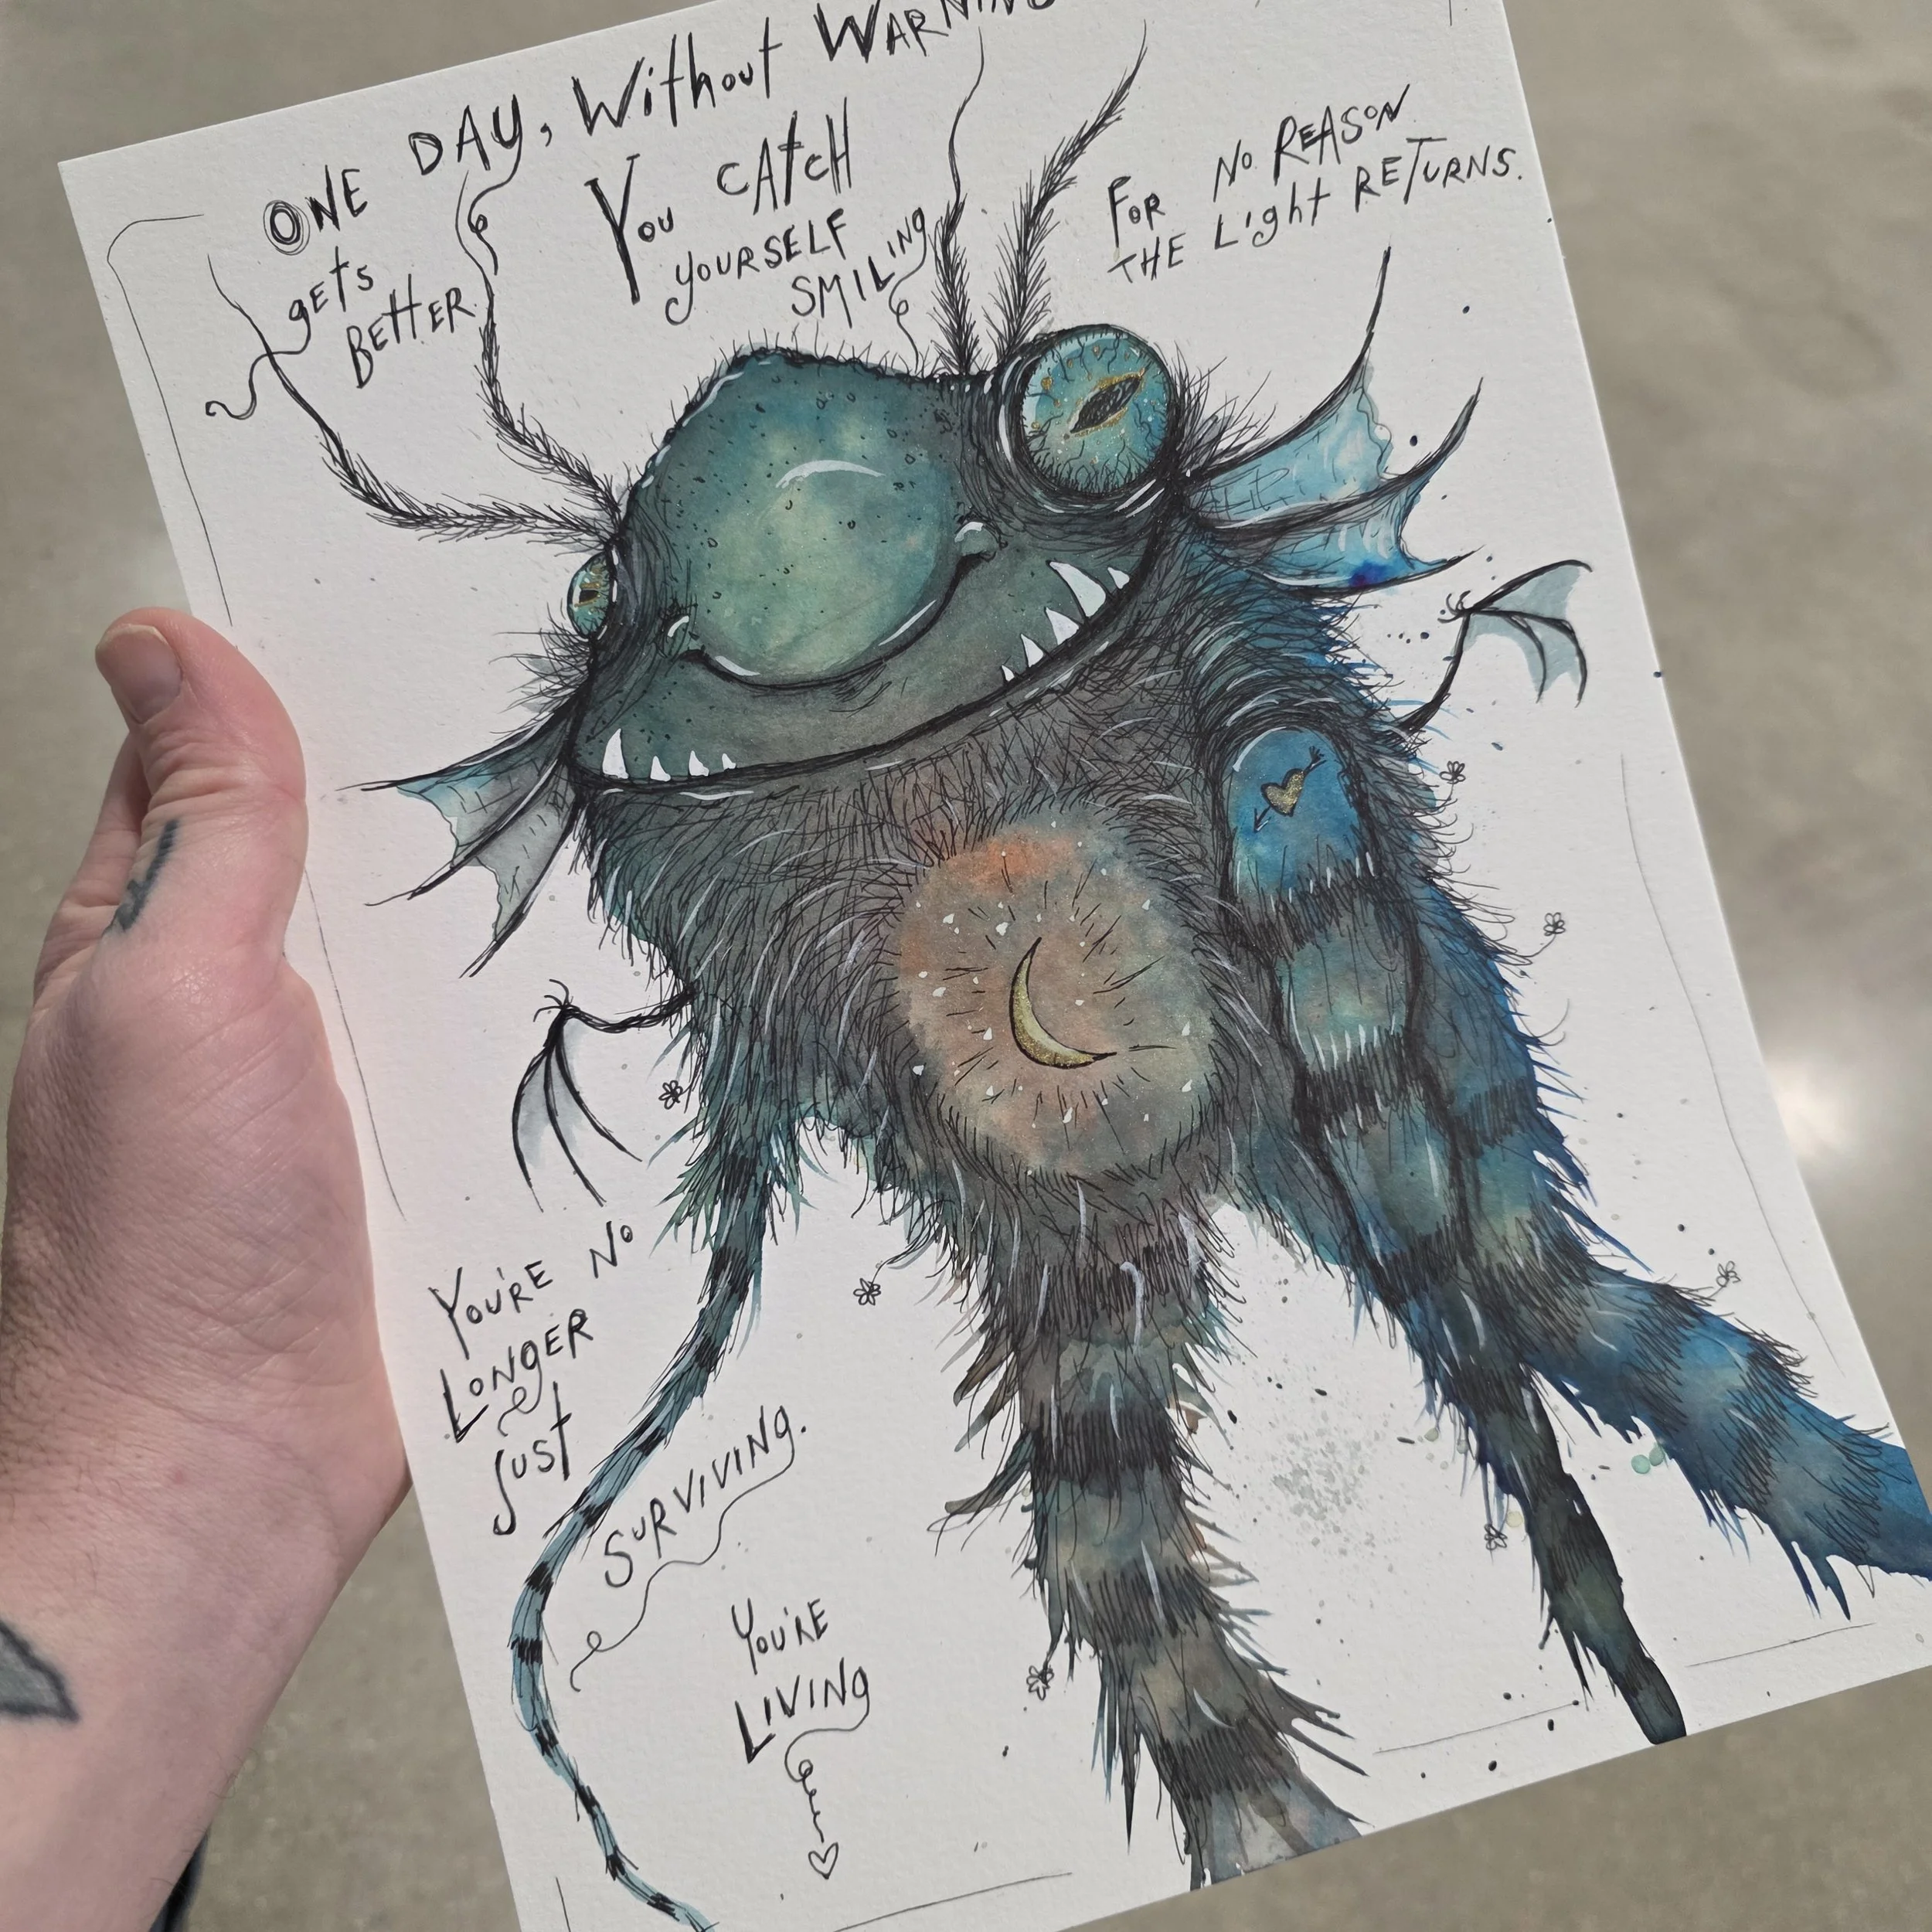 ONE DAY, Without WARNING
gets
BETTER
You CAtcH
yOURSELF
SMILING
FOR NO REASON
THE Light RETURNS.
YOU'RE NO
LONGER
JUST
SURVIVING.
YOU'RE
LIVING